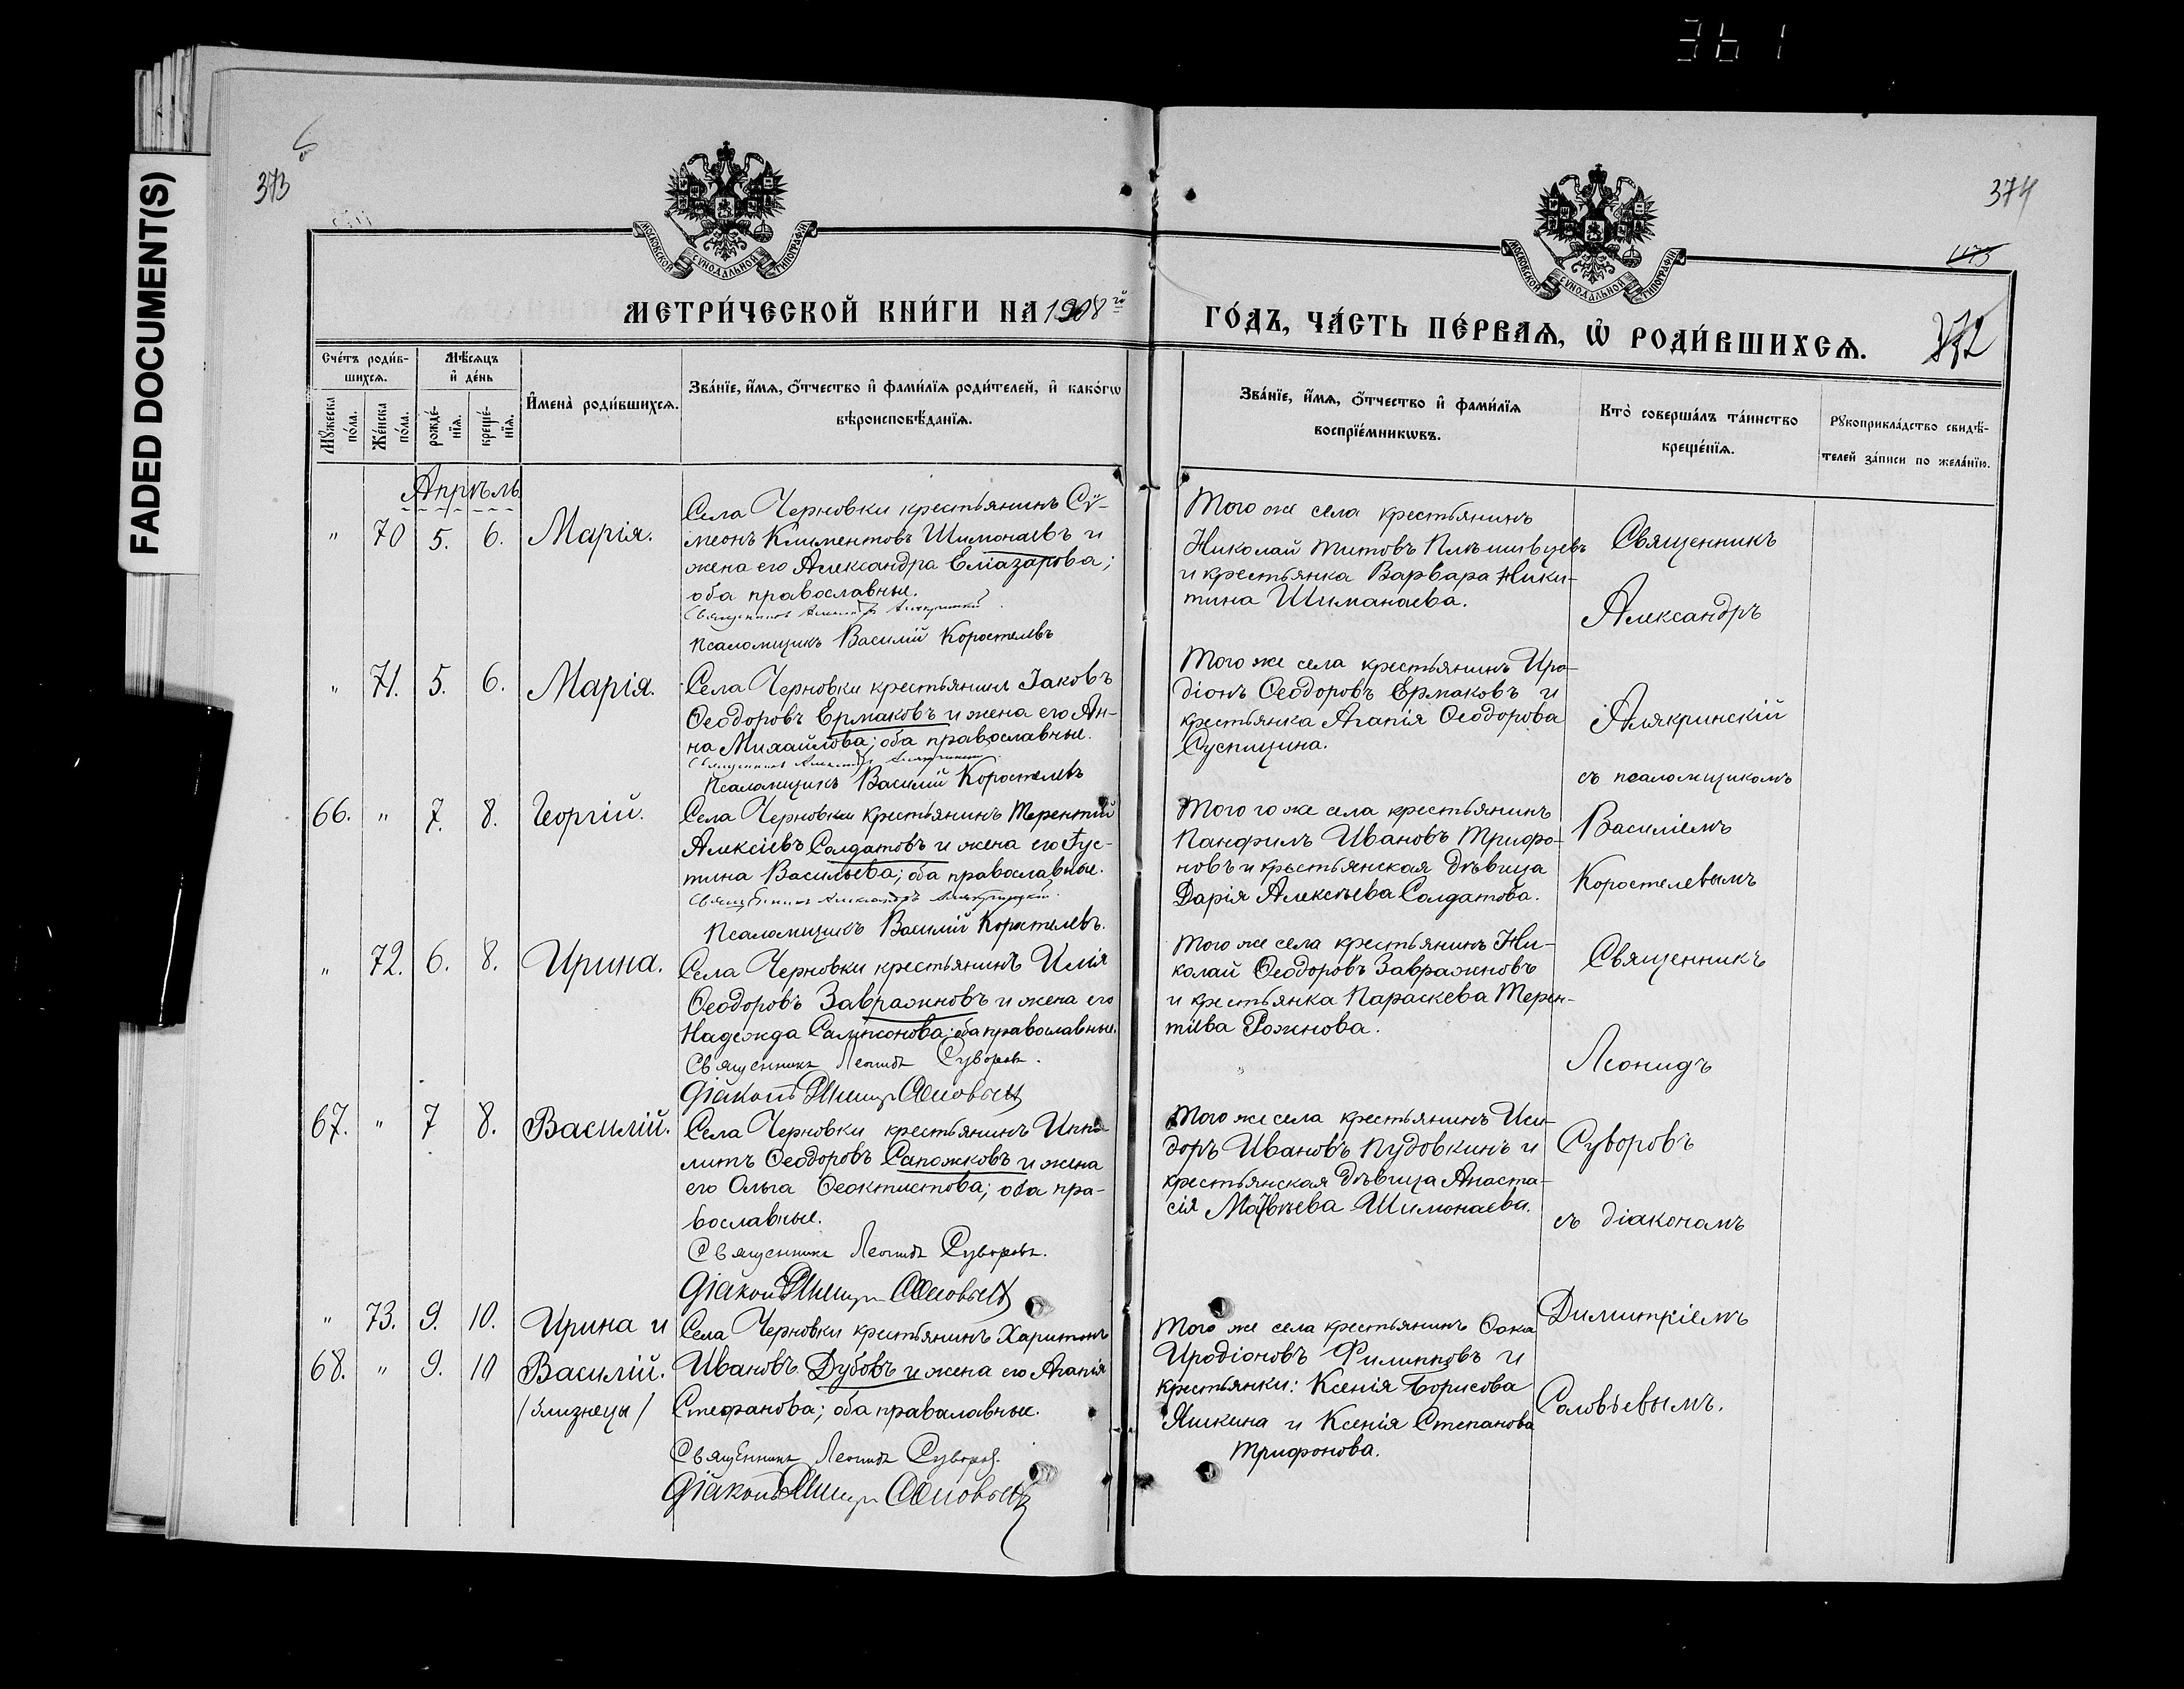 361
FADED DOCUMENT(S)
373
374
175
МОСКОВСКОЙ СѴНОДАЛЬНОЙ ТИПОГРАФІИ
МОСКОВСКОЙ СѴНОДАЛЬНОЙ ТИПОГРАФІИ
МЕТРИ́ЧЕСКОЙ КНИ́ГИ НА 1908 й
ГО́ДЪ, ЧА́СТЬ ПЕ́РВАѦ, Ѡ҆ РОДИ́ВШИХСѦ.
372
Сче́тъ роди́в-
шихсѧ.
Мѣ́сѧцъ
и҆ де́нь
Мꙋ́жеска
по́ла.
Же́нска
по́ла.
рожде́-
нїѧ.
креще́-
нїѧ.
И҆мена̀ роди́вшихсѧ.
Зва́нїе, и҆́мѧ, ѻ҆́тчество и҆ фами́лїѧ роди́телей, и҆ како́гѡ
вѣроисповѣ́данїѧ.
Зва́нїе, и҆́мѧ, ѻ҆́тчество и҆ фами́лїѧ
воспрїе́мникѡвъ.
Кто̀ соверша́лъ та́инство
креще́нїѧ.
Рꙋкоприкла́дство свидѣ́-
телей за́писи по жела́нїю.
Апрѣль.
" 70 5. 6. Марія.
Села Черновки крестьянинъ Сѵ-
меонъ Климентовъ Шимонаевъ и
жена его Александра Еліазарова;
оба православные.
Священникъ Александръ Алякринскій
Псаломщикъ Василій Коростелевъ
Того же села крестьянинъ
Николай Титовъ Плѣшивцевъ
и крестьянка Варвара Ники-
тина Шиманаева.
" 71. 5. 6. Марія.
Села Черновки крестьянинъ Іаковъ
Ѳеодоровъ Ермаковъ и жена его Ан-
на Михайлова; оба православные.
Священникъ Александръ Алякринскій
Псаломщикъ Василій Коростелевъ
Того же села крестьянинъ Иро-
діонъ Ѳеодоровъ Ермаковъ и
крестьянка Агапія Ѳеодорова
Суспицина.
66. " 7. 8. Георгій.
Села Черновки крестьянинъ Терентій
Алексіевъ Солдатовъ и жена его Іус-
тина Васильева; оба православные.
Священникъ Александръ Алякринскій
Псаломщикъ Василій Коростелевъ.
Того го же села крестьянинъ
Панфилъ Ивановъ Трифо-
новъ и крестьянская дѣвица
Дарія Алексѣева Солдатова.
" 72. 6. 8. Ирина.
Села Черновки крестьянинъ Илія
Ѳеодоровъ Завражновъ и жена его
Надежда Сампсонова; оба православные.
Священникъ Леонидъ Суворовъ.
Діаконъ Димитр Соловьевъ
Того же села крестьянинъ Ни-
колай Ѳеодоровъ Завражновъ
и крестьянка Параскева Терен-
тіева Рожнова.
67. " 7 8. Василій.
Села Черновки крестьянинъ Иппо-
литъ Ѳеодоровъ Сапожковъ и жена
его Ольга Ѳеоктистова; оба пра-
вославные.
Священникъ Леонидъ Суворовъ.
Діаконъ Димитр Соловьевъ
Того же села крестьянинъ Иси-
доръ Ивановъ Пудовкинъ и
крестьянская дѣвица Анаста-
сія Матвѣева Шимонаева.
" 73. 9. 10. Ирина и
68. " 9. 10 Василій.
/близнецы/
Села Черновки крестьянинъ Харитонъ
Ивановъ Дубовъ и жена его Агапія
Стефанова; оба православные.
Священникъ Леонидъ Суворовъ.
Діаконъ Димитр Соловьевъ
Того же села крестьянинъ Ѳока
Иродіоновъ Филипповъ и
крестьянки: Ксенія Борисова
Яшкина и Ксенія Степанова
Трифонова.
Священникъ
Александръ
Алякринскій
съ псаломщикомъ
Василіемъ
Коростелевымъ
Священникъ
Леонидъ
Суворовъ
съ діакономъ
Димитріемъ
Соловьевымъ.